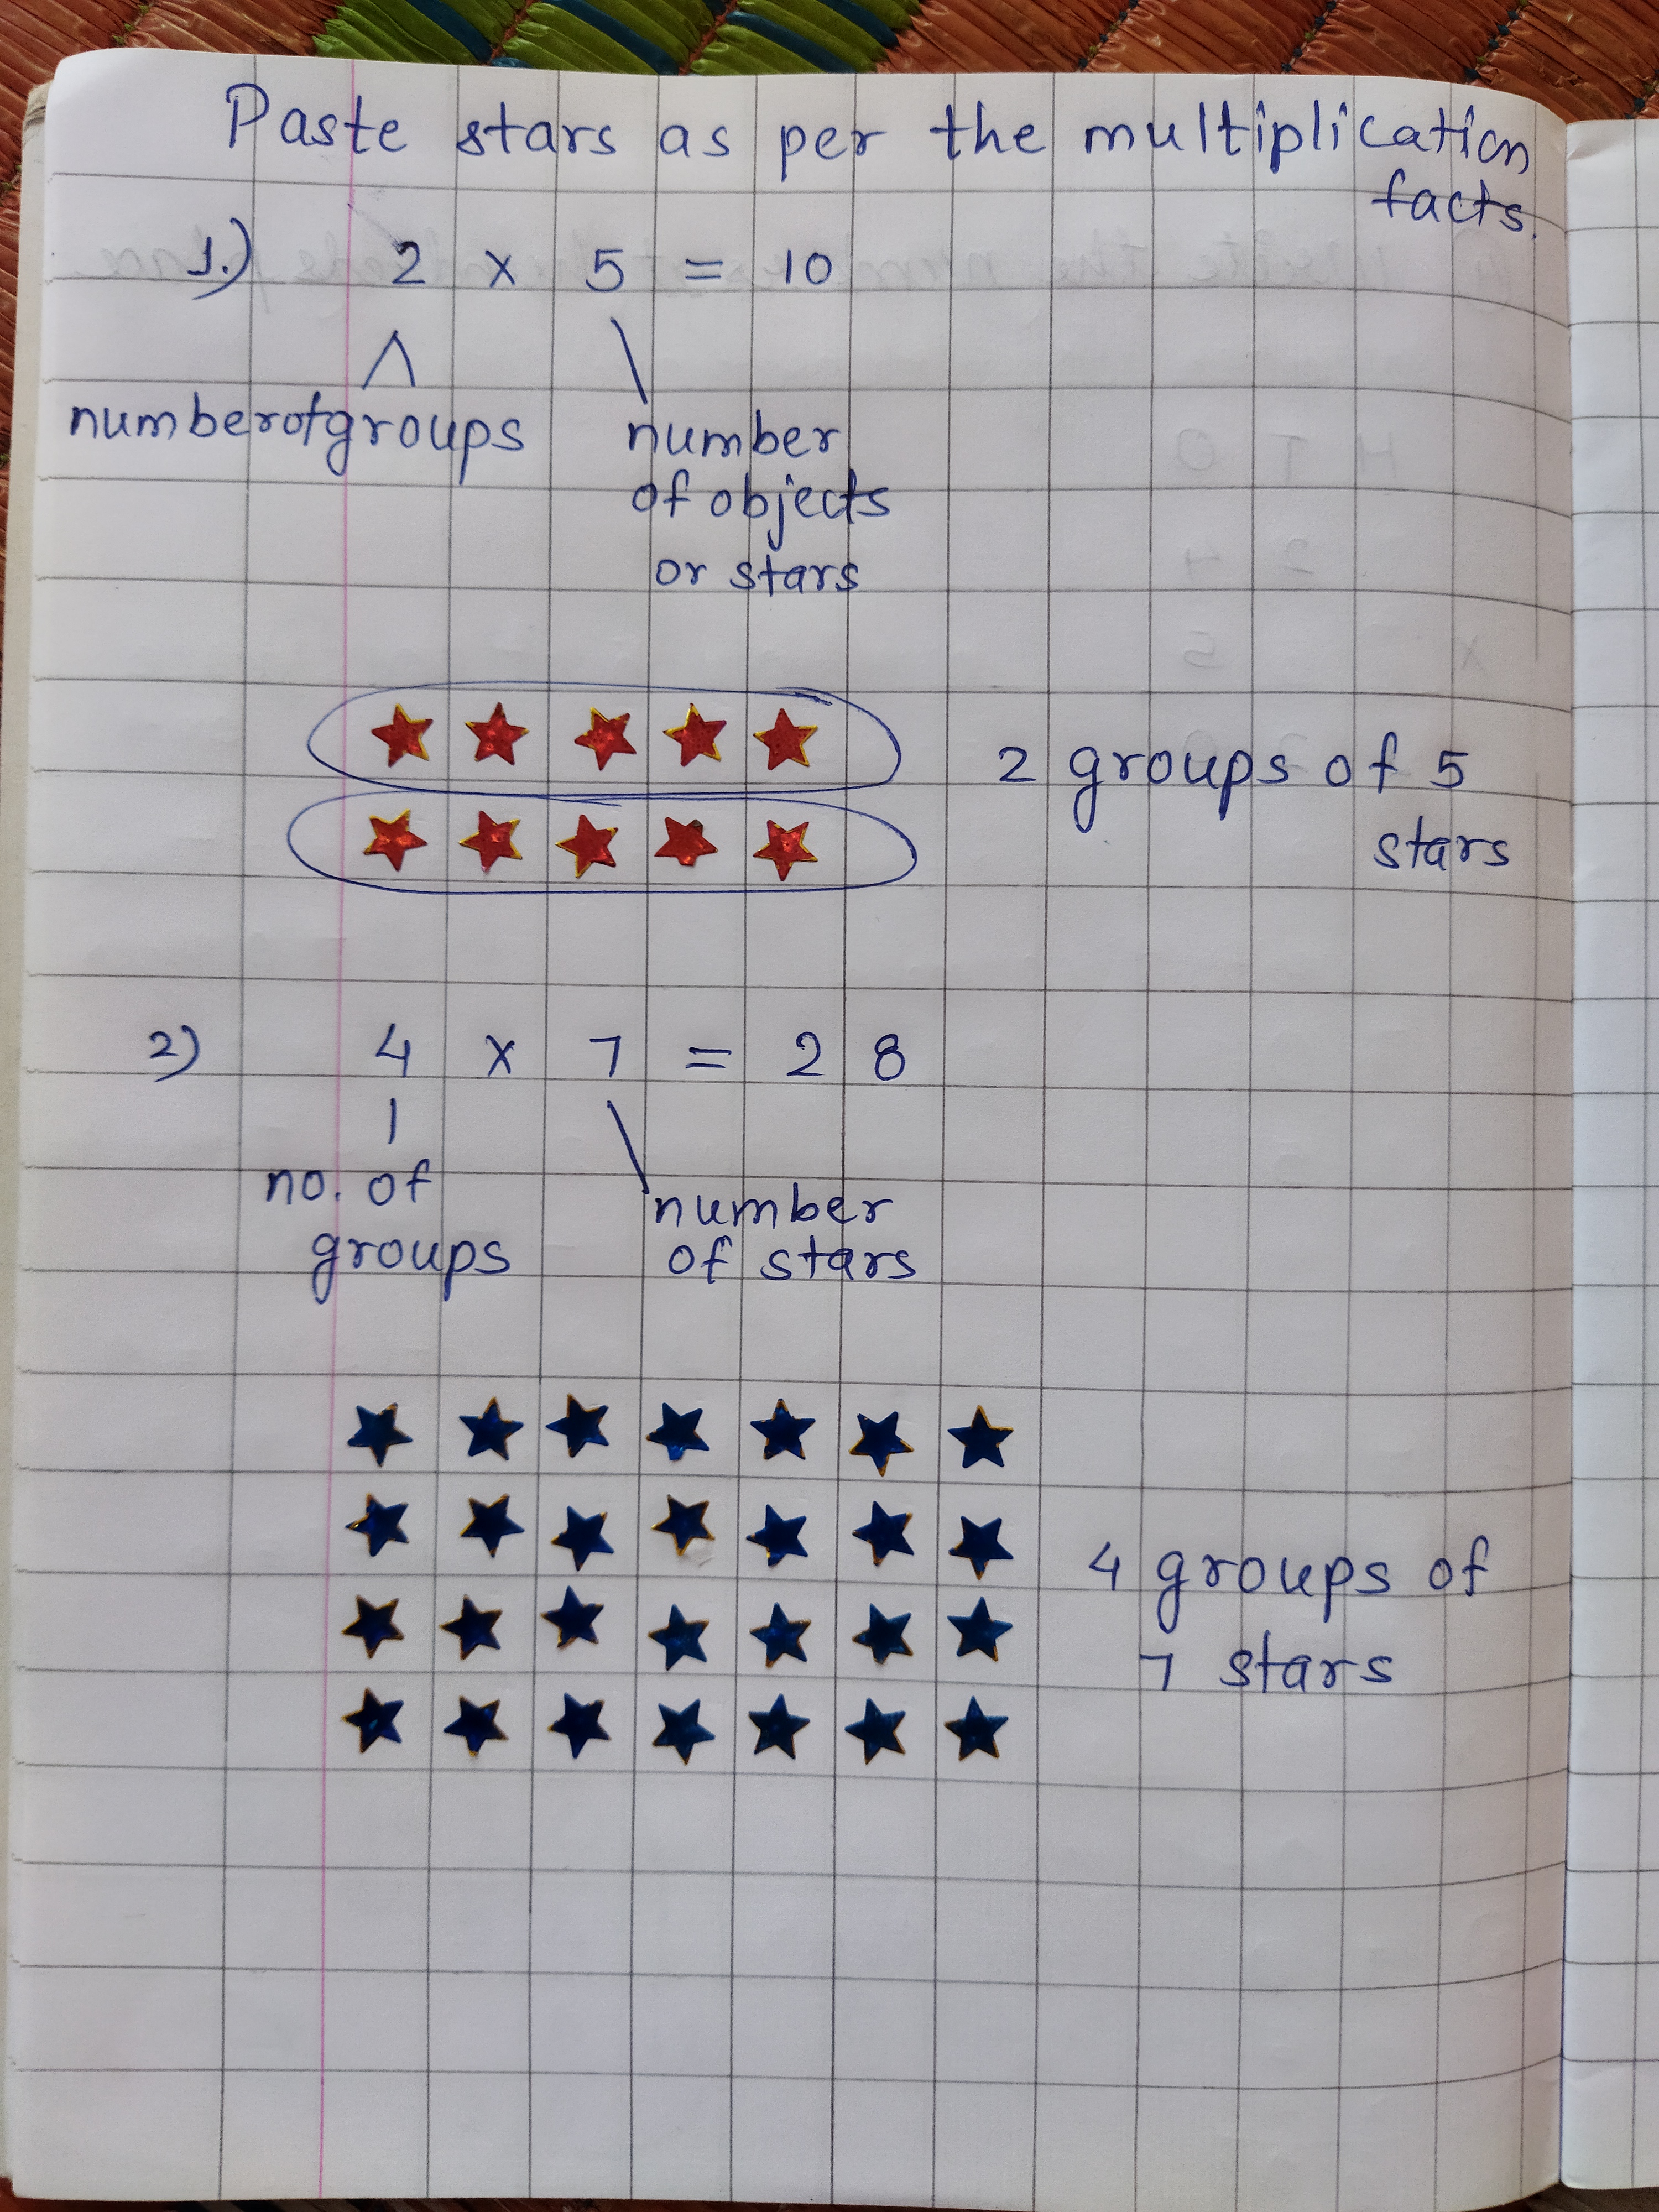 Paste stars as per the multiplication
facts.
1.) 2 x 5 = 10
number of groups
number
of objects
or stars
2 groups of 5
stars
2) 4 x 7 = 28
no. of
groups
number
of stars
4 groups of
7 stars